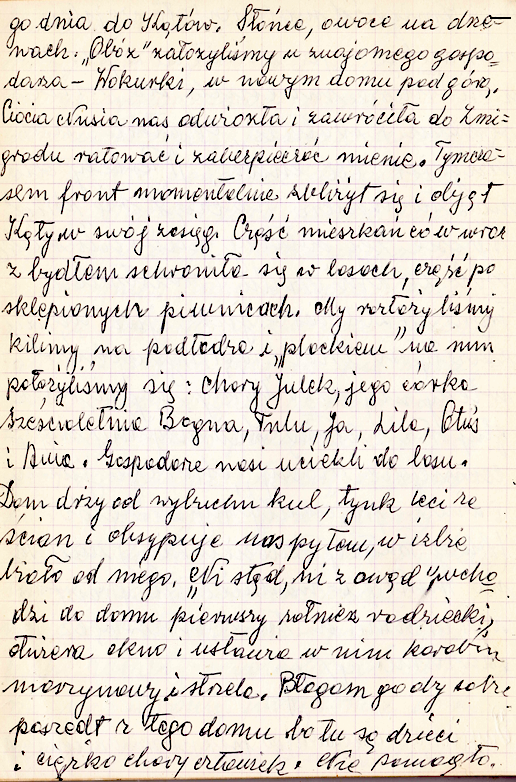 go dnia do Kątów. Słońce, owoce na drze-
wach. „Obóz" założyliśmy u znajomego gospo-
darza – Wokurki, w nowym domu pod górą.
Ciocia Nusia nas odwiozła i zawróciła do Żmi-
grodu ratować i zabezpieczać mienie. Tymcza-
sem front momentalnie zbliżył się i objął
Kąty w swój zasięg. Część mieszkańców wraz
z bydłem schroniła się w lasach, część po
sklepionych piwnicach. My rozłożyliśmy
kilimy na podłodze i „plackiem" na nim
położyliśmy się: chory Julek, jego córka
sześcioletnia Bogna, Tulu, Ja, Lila, Otuś
i Ania. Gospodarze nasi uciekli do lasu.
Dom drży od wybuchu kul, tynk leci ze
ścian i obsypuje nas pyłem, w izbie
biało od niego. „Ni stąd, ni z owąd" wcho
dzi do domu pierwszy żołnierz radziecki,
otwiera okno i ustawia w nim karabin
maszynowy i strzela. Błagam go by sobie
poszedł z tego domu bo tu są dzieci
i ciężko chory człowiek. Nie pomogło.